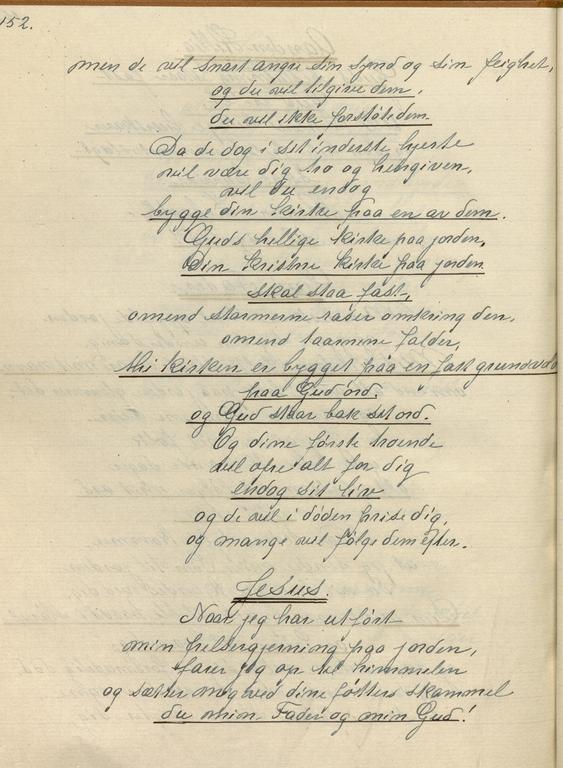 152.
men de vil snart angre sin synd og sin feighet,
og du vil tilgive dem,
du vil ikke forstøte dem.
Da de dog i sit inderste hjerte
vil være dig tro og hengiven,
vil du endog
bygge din kirke paa en av dem.
Guds hellige kirke paa jorden,
Din kristne kirke paa jorden
skal staa fast,
omend stormerne raser omkring den,
omend taarnene falder,
thi kirken er bygget paa en fast grundvold
paa Guds ord.
og Gud staar bak sit ord.
Og dine første troende
vil ofre alt for dig
endog sit liv
og de vil i døden prise dig,
og mange vil følge dem efter.
Jesus.
Naar jeg har utført
min frelsergjerning paa jorden,
farer jeg op til himmelen
og sætter mig ved dine føtters skammel
du min Fader og min Gud!